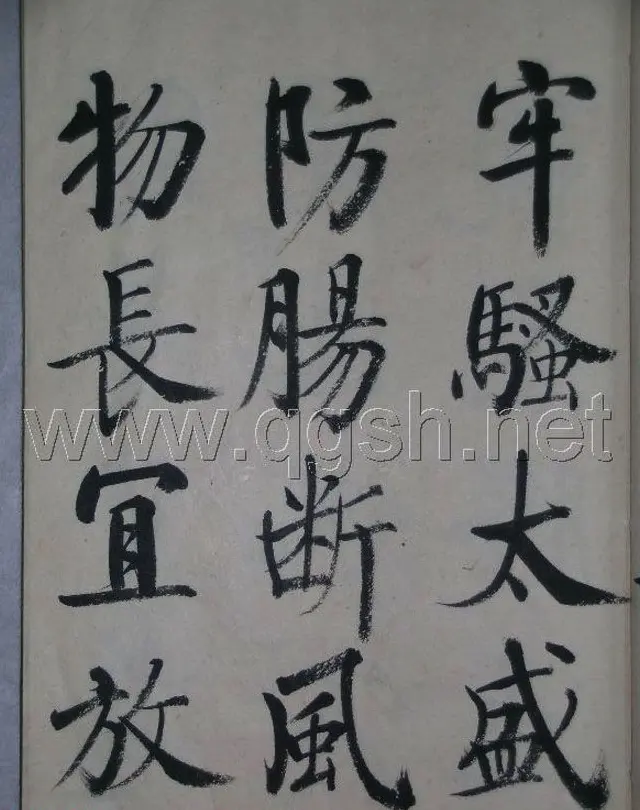 牢騷太盛
防腸断風
物長宜放
www.qgsh.net